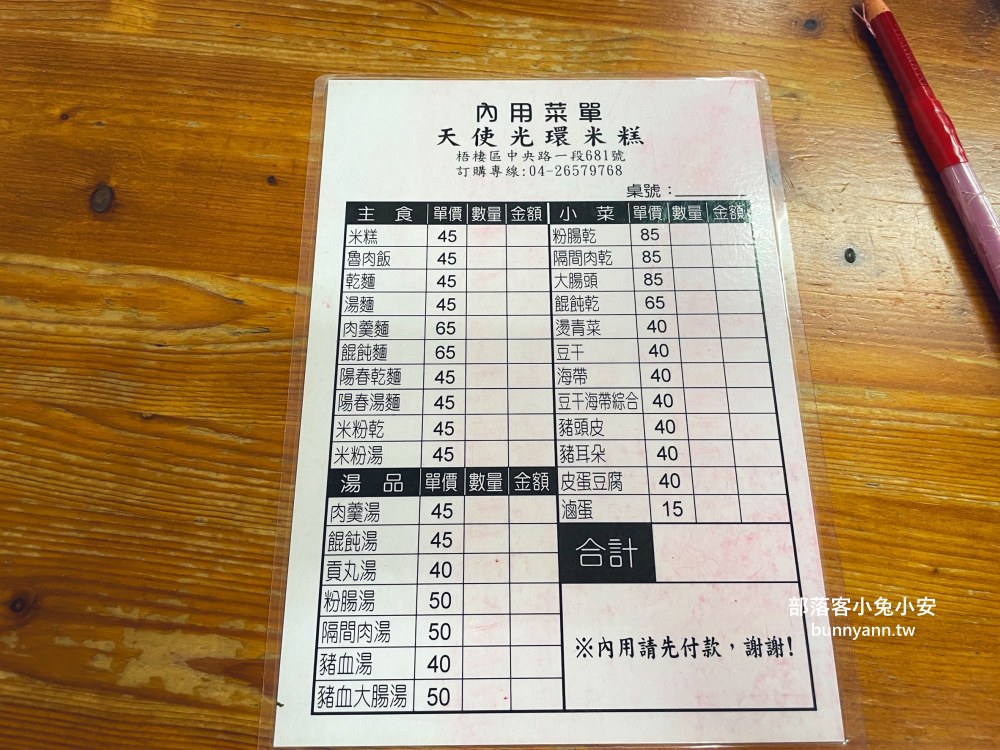 內用菜單
天使光環米糕
梧棲區中央路一段681號
訂購專線:04-26579768
桌號:
主食 單價 數量 金額
米糕 45
魯肉飯 45
乾麵 45
湯麵 45
肉羹麵 65
餛飩麵 65
陽春乾麵 45
陽春湯麵 45
米粉乾 45
米粉湯 45
湯品 單價 數量 金額
肉羹湯 45
餛飩湯 45
貢丸湯 40
粉腸湯 50
隔間肉湯 50
豬血湯 40
豬血大腸湯 50
小菜 單價 數量 金額
粉腸乾 85
隔間肉乾 85
大腸頭 85
餛飩乾 65
燙青菜 40
豆干 40
海帶 40
豆干海帶綜合 40
豬頭皮 40
豬耳朵 40
皮蛋豆腐 40
滷蛋 15
合計
※內用請先付款，謝謝!
部落客小兔小安
bunnyann.tw